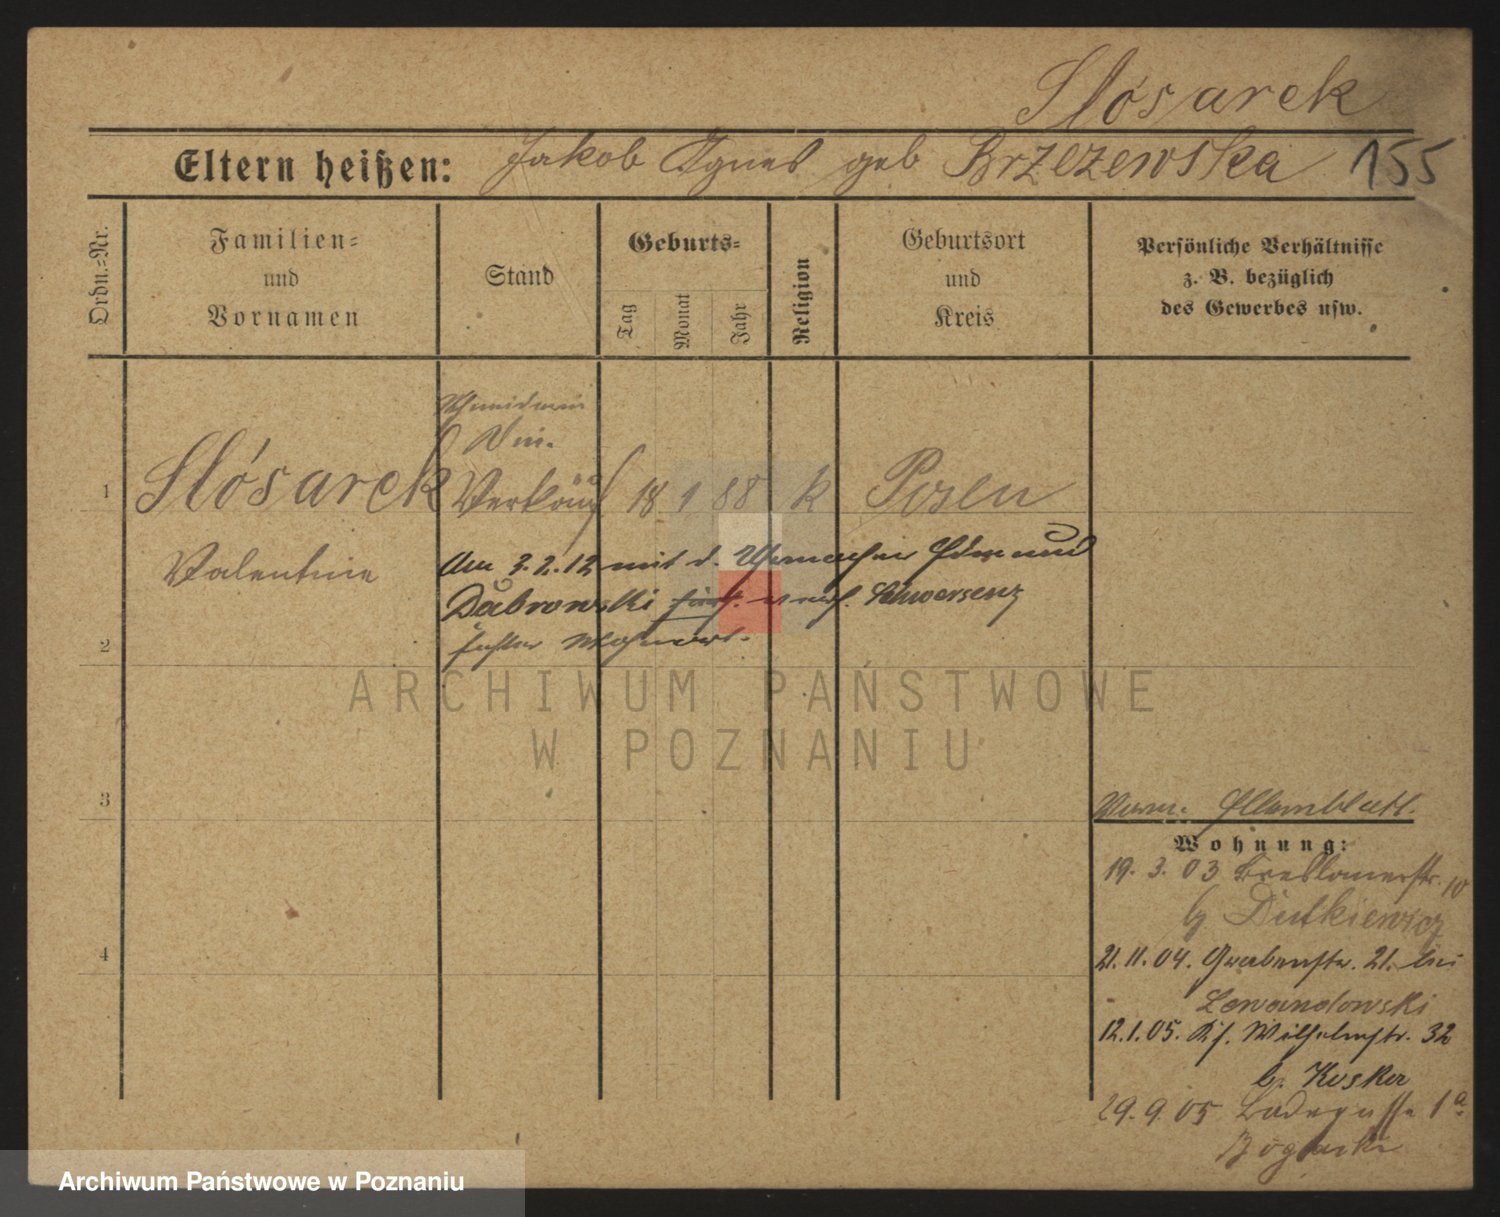 Slósarek
Eltern heißen: Jakob Agnes geb Brzezewska 155
Ordn.-Nr.
Familien-
und
Vornamen
Stand
Geburts-
Tag
Monat
Jahr
Religion
Geburtsort
und
Kreis
Persönliche Verhältnisse
z. B. bezüglich
des Gewerbes usw.
1 Slósarek 18 1 88 k Posen
Valentine
Am 3.2.12 mit d. Uhrmacher
Dabrowski Schwersenz
2
ARCHIWUM PAŃSTWOWE
W POZNANIU
3
Wohnung:
19. 3. 03 Breslauerstr. 10
b Dutkiewicz
4
21. 11. 04. Grabenstr. 21. bei
Lewandowski
12. 1. 05. Wilhelmstr. 32
b. Koska
29. 9. 05 Badegasse 1a
Archiwum Państwowe w Poznaniu